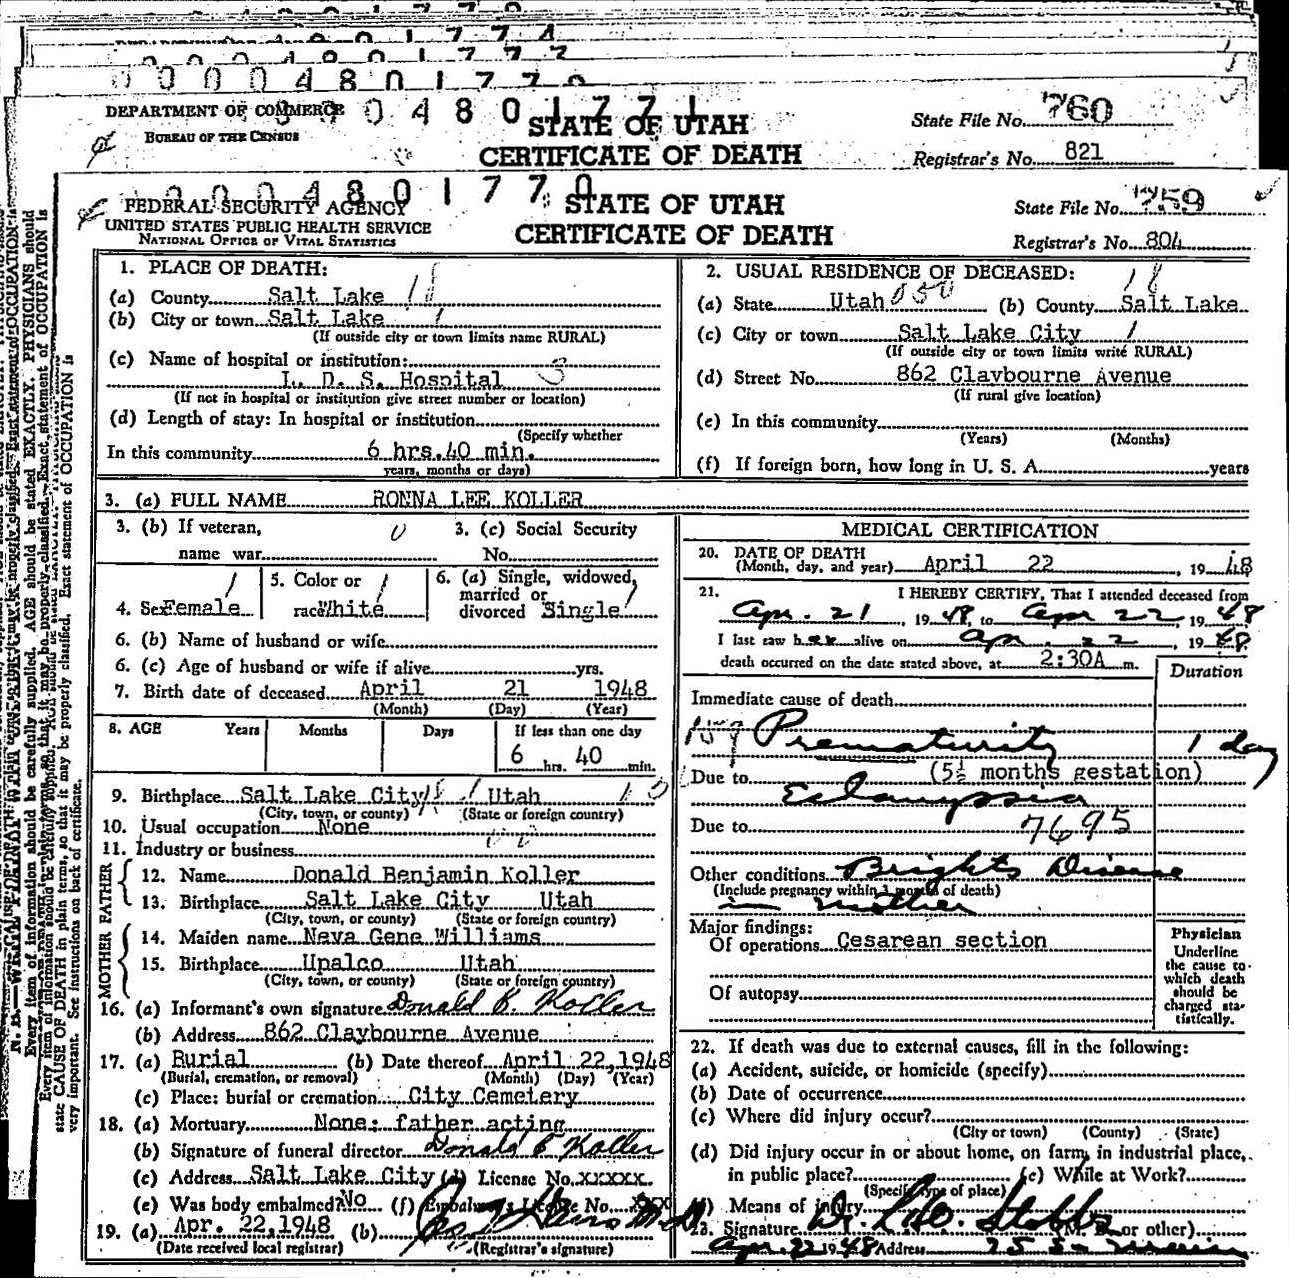 1 7 7 4
0 0 0 4 8 0 1 7 7
DEPARTMENT OF COMMERCE 0 4 8 0 1 7 7 1
BUREAU OF THE CENSUS
STATE OF UTAH
CERTIFICATE OF DEATH
State File No. 760
Registrar's No. 821
0 0 0 4 8 0 1 7 7 0
FEDERAL SECURITY AGENCY
UNITED STATES PUBLIC HEALTH SERVICE
NATIONAL OFFICE OF VITAL STATISTICS
STATE OF UTAH
CERTIFICATE OF DEATH
State File No. 759
Registrar's No. 804
1. PLACE OF DEATH:
(a) County Salt Lake 18
(b) City or town Salt Lake 1
(If outside city or town limits name RURAL)
(c) Name of hospital or institution:
L. D. S. Hospital 3
(If not in hospital or institution give street number or location)
(d) Length of stay: In hospital or institution
(Specify whether
In this community 6 hrs.40 min.
years, months or days)
2. USUAL RESIDENCE OF DECEASED: 18
(a) State Utah 050 (b) County Salt Lake
(c) City or town Salt Lake City 1
(If outside city or town limits write RURAL)
(d) Street No. 862 Claybourne Avenue
(If rural give location)
(e) In this community
(Years) (Months)
(f) If foreign born, how long in U. S. A. years
3. (a) FULL NAME RONNA LEE KOLLER
3. (b) If veteran, 0 3. (c) Social Security
name war No.
4. Sex Female 1 5. Color or race White 1 6. (a) Single, widowed, married or divorced Single 1
6. (b) Name of husband or wife
6. (c) Age of husband or wife if alive yrs.
7. Birth date of deceased April 21 1948
(Month) (Day) (Year)
8. AGE Years Months Days If less than one day
6 hrs. 40 min.
9. Birthplace Salt Lake City 18 1 Utah
(City, town, or county) (State or foreign country)
10. Usual occupation None
11. Industry or business
FATHER
12. Name Donald Benjamin Koller
13. Birthplace Salt Lake City Utah
(City, town, or county) (State or foreign country)
MOTHER
14. Maiden name Neva Gene Williams
15. Birthplace Upalco Utah
(City, town, or county) (State or foreign country)
16. (a) Informant's own signature Donald B. Koller
(b) Address 862 Claybourne Avenue
17. (a) Burial (b) Date thereof April 22,1948
(Burial, cremation, or removal) (Month) (Day) (Year)
(c) Place: burial or cremation City Cemetery
18. (a) Mortuary None: father acting
(b) Signature of funeral director Donald B Koller
(c) Address Salt Lake City (d) License No. xxxxx
(e) Was body embalmed? No (f) Embalmer's License No. xxx
19. (a) Apr. 22,1948 (b)
(Date received local registrar) (Registrar's signature)
MEDICAL CERTIFICATION
20. DATE OF DEATH
(Month, day, and year) April 22, 19 48
21. I HEREBY CERTIFY, That I attended deceased from
Apr. 21, 19 48, to Apr 22 19 48
I last saw her alive on Apr. 22, 19 48
death occurred on the date stated above, at 2:30A m.
Duration
Immediate cause of death
159 Prematurity 1 day
Due to (5½ months gestation)
Eclampsia
Due to 7695
Other conditions Brights Disease
(Include pregnancy within 3 months of death)
in mother
Major findings:
Of operations Cesarean section
Of autopsy
Physician
Underline
the cause to
which death
should be
charged sta-
tistically.
22. If death was due to external causes, fill in the following:
(a) Accident, suicide, or homicide (specify)
(b) Date of occurrence
(c) Where did injury occur?
(City or town) (County) (State)
(d) Did injury occur in or about home, on farm, in industrial place,
in public place? (e) While at Work?
(Specify type of place)
(f) Means of injury
23. Signature Dr. L. O. Stobbs (M. D. or other)
Apr. 22 1948 Address 75 S.
Every item of information should be carefully supplied. AGE should be stated EXACTLY. PHYSICIANS should
state CAUSE OF DEATH in plain terms, so that it may be properly classified. Exact statement of OCCUPATION is
very important. See instructions on back of certificate.